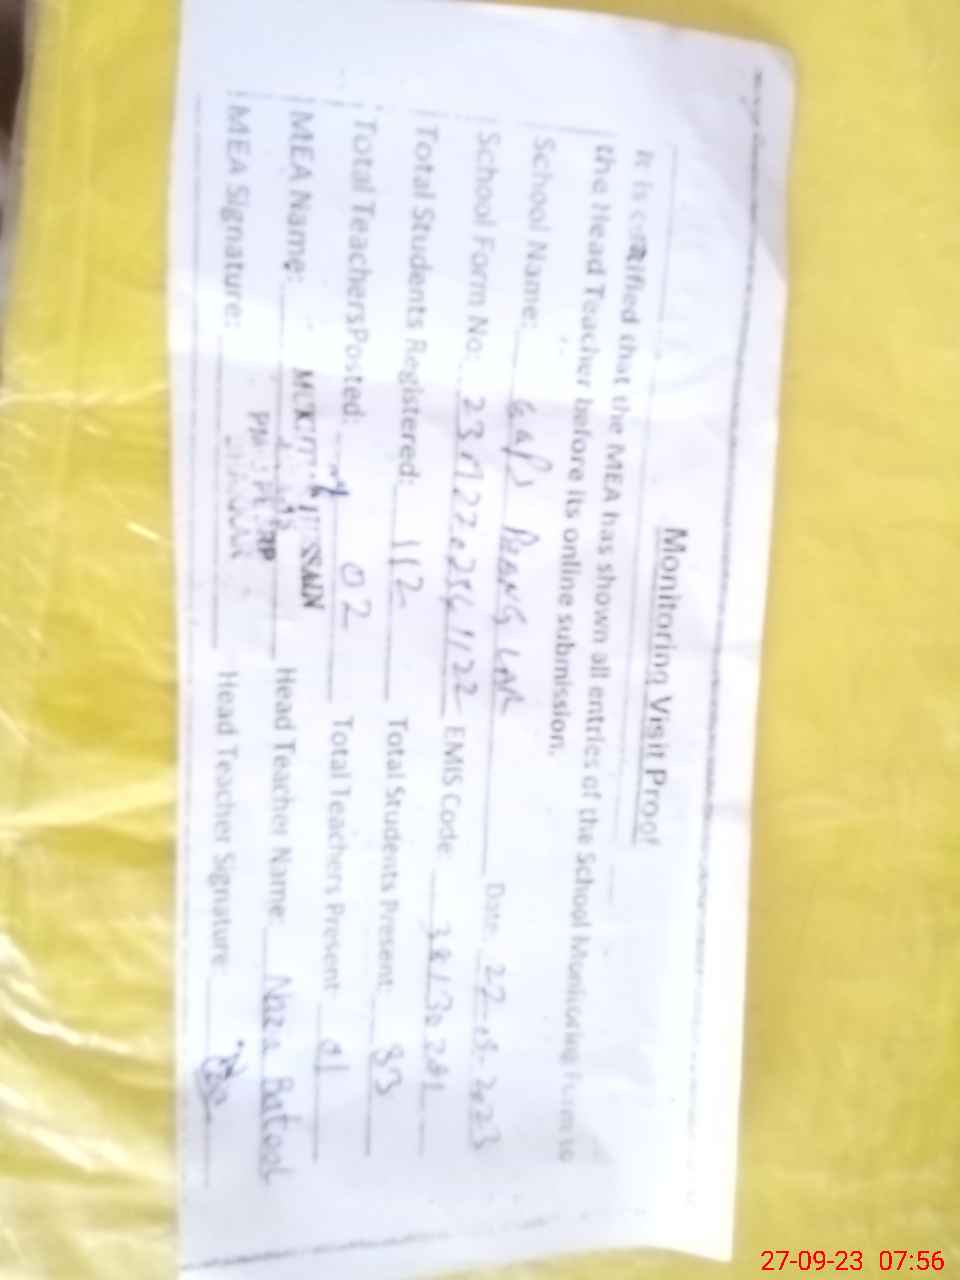 Monitoring Visit Proof
It is certified that the MEA has shown all entries of the School Monitoring Form to
the Head Teacher before its online submission.
School Name: Date 22-09-2023
School Form No: EMIS Code:
Total Students Registered: 112 Total Students Present: 83
Total Teachers Posted: 02 Total Teachers Present: 01
MEA Name: Head Teacher Name: Nazia Batool
MEA Signature: Head Teacher Signature:
27-09-23 07:56